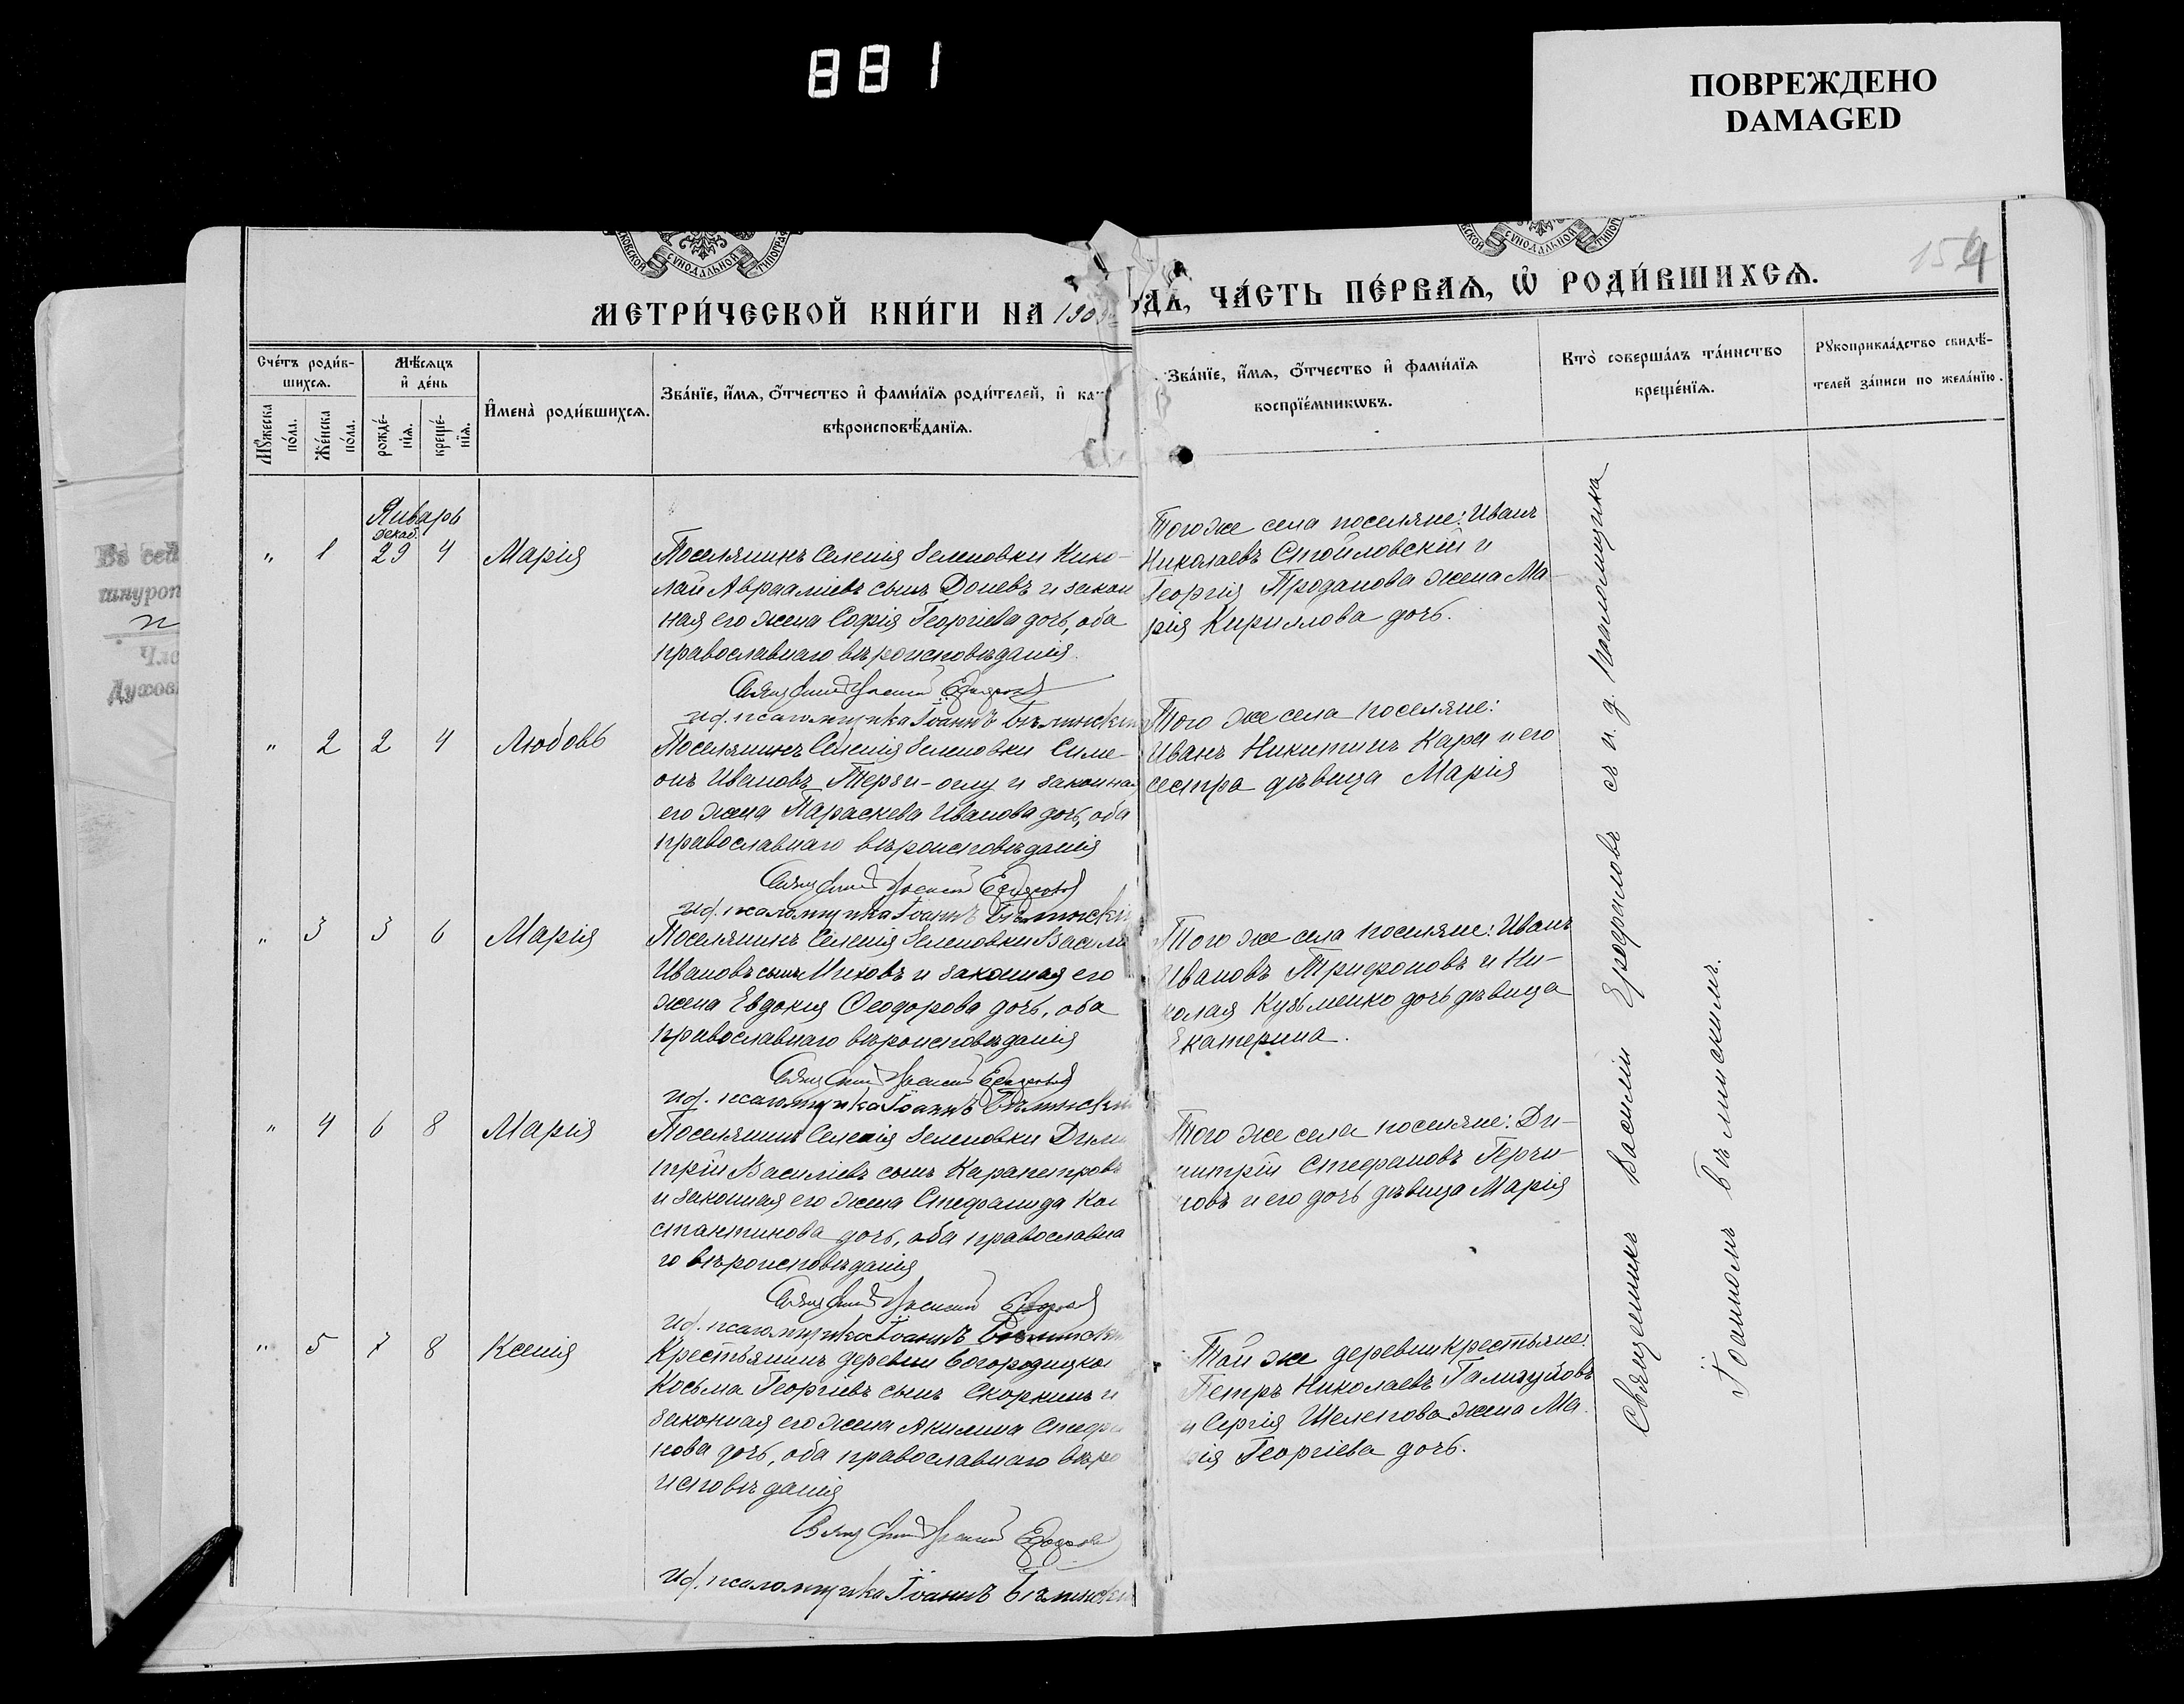 881
ПОВРЕЖДЕНО
DAMAGED
154
МЕТРИ́ЧЕСКОЙ КНИ́ГИ НА 1909
ОДА, ЧА́СТЬ ПЕ́РВАѦ, Ѽ РОДИ́ВШИХСѦ.
Сче́тъ роди́в-
шихсѧ.
Мѣ́сѧцъ
и҆ де́нь
Мꙋ́жеска
по́ла.
Же́нска
по́ла.
рожде́-
нїѧ.
креще́-
нїѧ.
И҆мена̀ роди́вшихсѧ.
Зва́нїе, и҆́мѧ, ѻ҆́тчество и҆ фами́лїѧ роди́телей, и҆ ка
вѣроисповѣ́данїѧ.
Зва́нїе, и҆́мѧ, ѻ҆́тчество и҆ фами́лїѧ
воспрїе́мникѡвъ.
Кто̀ соверша́лъ та́инство
креще́нїѧ.
Рꙋкоприкла́дство свидѣ́-
телей за́писи по жела́нїю.
Январь
декаб.
" 1 29 4 Марія
Поселянинъ селенія Зеленовки Нико-
лай Авраамiевъ сынъ Доневъ и закон
ная его жена Софія Георгіева дочь, оба
православнаго вѣроисповѣданія.
Священникъ Василій Ерофаловъ
и. д. псаломщика Іоаннъ Бѣлинскій
Того же села поселяне: Иванъ
Николаевъ Стойловскій и
Георгія Проданова жена Ма-
рія Кириллова дочь.
" 2 2 4 Любовь
Поселянинъ селенія Зеленовки Симе-
онъ Ивановъ Терзи-оглу и законная
его жена Параскева Иванова дочь, оба
православнаго вѣроисповѣданія
Священникъ Василій Ерофаловъ
и. д. псаломщика Іоаннъ Бѣлинскій
Того же села поселяне:
Иванъ Никитинъ Кара и его
сестра дѣвица Марія
" 3 3 6 Марія
Поселянинъ селенія Зеленовки Васили
Ивановъ сынъ Миховъ и законная его
жена Евдокія Ѳеодорова дочь, оба
православнаго вѣроисповѣданія
Священникъ Василій Ерофаловъ
и. д. псаломщика Іоаннъ Бѣлинскій
Того же села поселяне: Иванъ
Ивановъ Трифоновъ и Ни-
колая Кузьменко дочь дѣвица
Екатерина.
" 4 6 8 Марія
Поселянинъ селенія Зеленовки Дими
трій Василіевъ сынъ Карапетровъ
и законная его жена Стефанида Кон
стантинова дочь, оба православна
го вѣроисповѣданія
Священникъ Василій Ерофаловъ
и. д. псаломщика Іоаннъ Бѣлинскій
Того же села поселяне: Ди-
митрій Стефановъ Герчи-
новъ и его дочь дѣвица Марія
" 5 7 8 Ксенія
Крестьянинъ деревни Богородицкой
Косьма Георгіевъ сынъ Скоркинъ и
законная его жена Акилина Стефа
нова дочь, оба православнаго вѣро
исповѣданія
Священникъ Василій Ерофаловъ
и. д. псаломщика Іоаннъ Бѣлинскій
Той же деревни крестьяне:
Петръ Николаевъ
и Сергія Шелепова жена Ма
рія Георгіева дочь.
Священникъ Василій Ерофаловъ съ и. д. псаломщика
Іоанномъ Бѣлинскимъ.
Въ сей
шнуроп
Чле
Духов